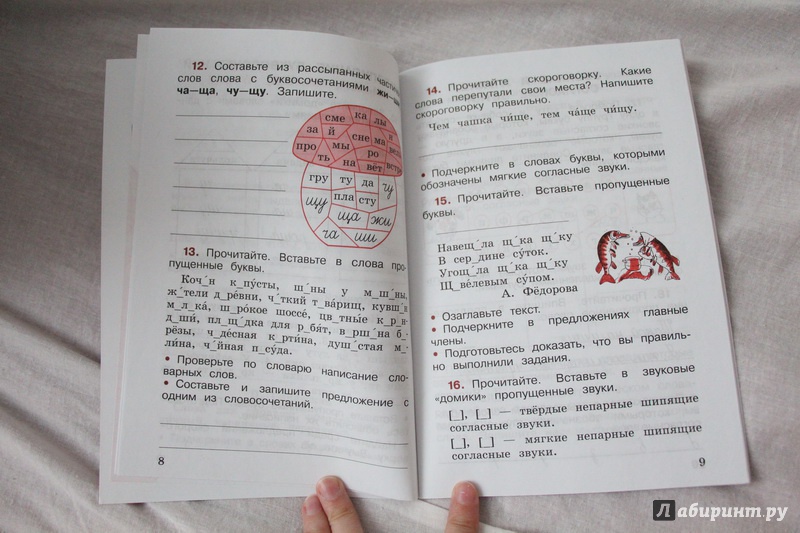 12. Составьте из рассыпанных частич
слов слова с буквосочетаниями жи—ши,
ча—ща, чу—щу. Запишите.
сме ка лы
за й сне ма в
про мы ро
ть на вет
гру ту да чу
щу пла сту
ща жи
ча ши
13. Прочитайте. Вставьте в слова про-
пущенные буквы.
Коч_н к_пу́сты, ш_ны у м_ш_ны,
ж_тели д_ре́вни, ч_ткий т_ва́рищ, кувш_н
м_л_ка́, ш_ро́кое шоссе́, цв_тны́е к_р_н-
д_ши́, пл_щ_дка для р_бя́т, в_рш_на б_-
рёзы, ч_де́сная к_рти́на, душ_стая м_-
ли́на, ч_йная п_су́да.
• Проверьте по словарю написание сло-
варных слов.
• Составьте и запишите предложение с
одним из словосочетаний.
8
14. Прочитайте скороговорку. Какие
слова перепутали свои места? Напишите
скороговорку правильно.
Чем чашка чи́ще, тем ча́ще чи́щу.
• Подчеркните в словах буквы, которыми
обозначены мягкие согласные звуки.
15. Прочитайте. Вставьте пропущенные
буквы.
Навещ_́ла щ_́ка щ_́ку
В сер_дине су́ток.
Угощ_́ла щ_́ка щ_́ку
Щ_ве́левым су́пом.
А. Фёдорова
• Озаглавьте текст.
• Подчеркните в предложениях главные
члены.
• Подготовьтесь доказать, что вы правиль-
но выполнили задания.
16. Прочитайте. Вставьте в звуковые
«домики» пропущенные звуки.
[_], [_] — твёрдые непарные шипящие
согласные звуки.
[_], [_] — мягкие непарные шипящие
согласные звуки.
9
Лабиринт.ру